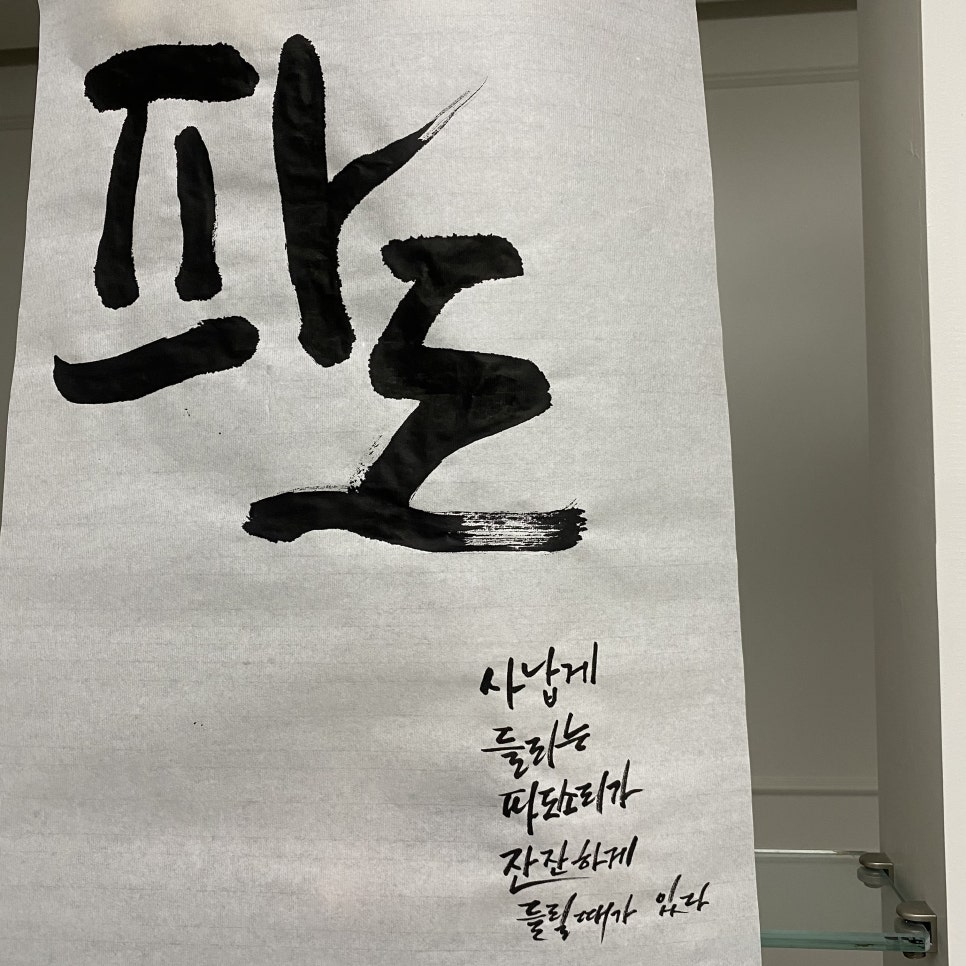 파도
사납게
들리는
파도소리가
잔잔하게
들릴때가 있다